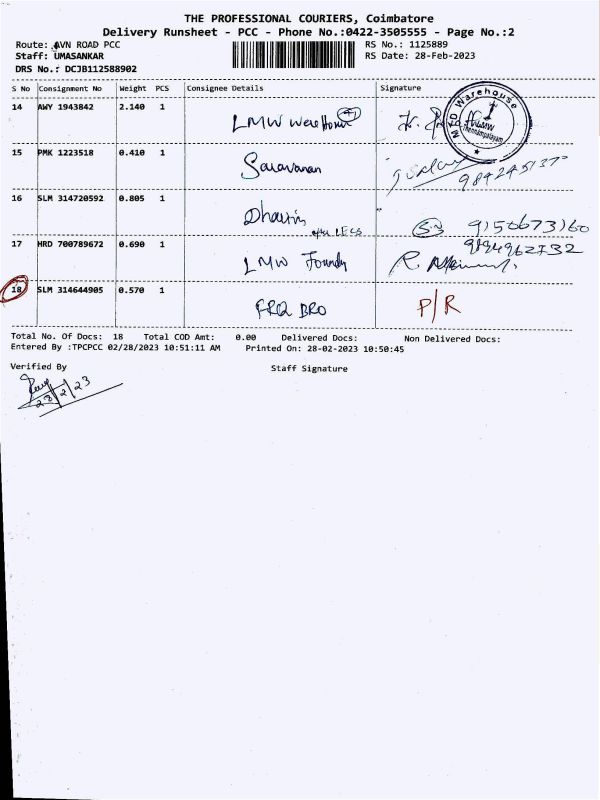 THE PROFESSIONAL COURIERS, Coimbatore
Delivery Runsheet - PCC - Phone No.:0422-3505555 - Page No.:2
Route: AVN ROAD PCC RS No.: 1125889
Staff: UMASANKAR RS Date: 28-Feb-2023
DRS No.: DCJB112588902
S No Consignment No Weight PCS Consignee Details Signature
14 AWY 1943842 2.140 1 LMW
MLD Warehouse
LMW
15 PMK 1223518 0.410 1 Saravanan
16 SLM 314720592 0.805 1 9150673160
17 HRD 700789672 0.690 1 LMW Foundry R.
18 SLM 314644905 0.570 1 BRO P/R
Total No. Of Docs: 18 Total COD Amt: 0.00 Delivered Docs: Non Delivered Docs:
Entered By :TPCPCC 02/28/2023 10:51:11 AM Printed On: 28-02-2023 10:50:45
Verified By Staff Signature
28/2/23